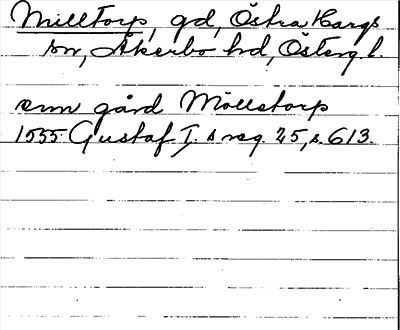 Milltorp, gd, Östra Hargs
sn, Åkerbo hd, Österg. l.
enn gård Möllestorp
1555 Gustaf I:s reg. 25, s. 613.